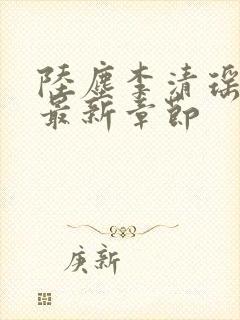 陸塵李清瑶
最新章節
庚新